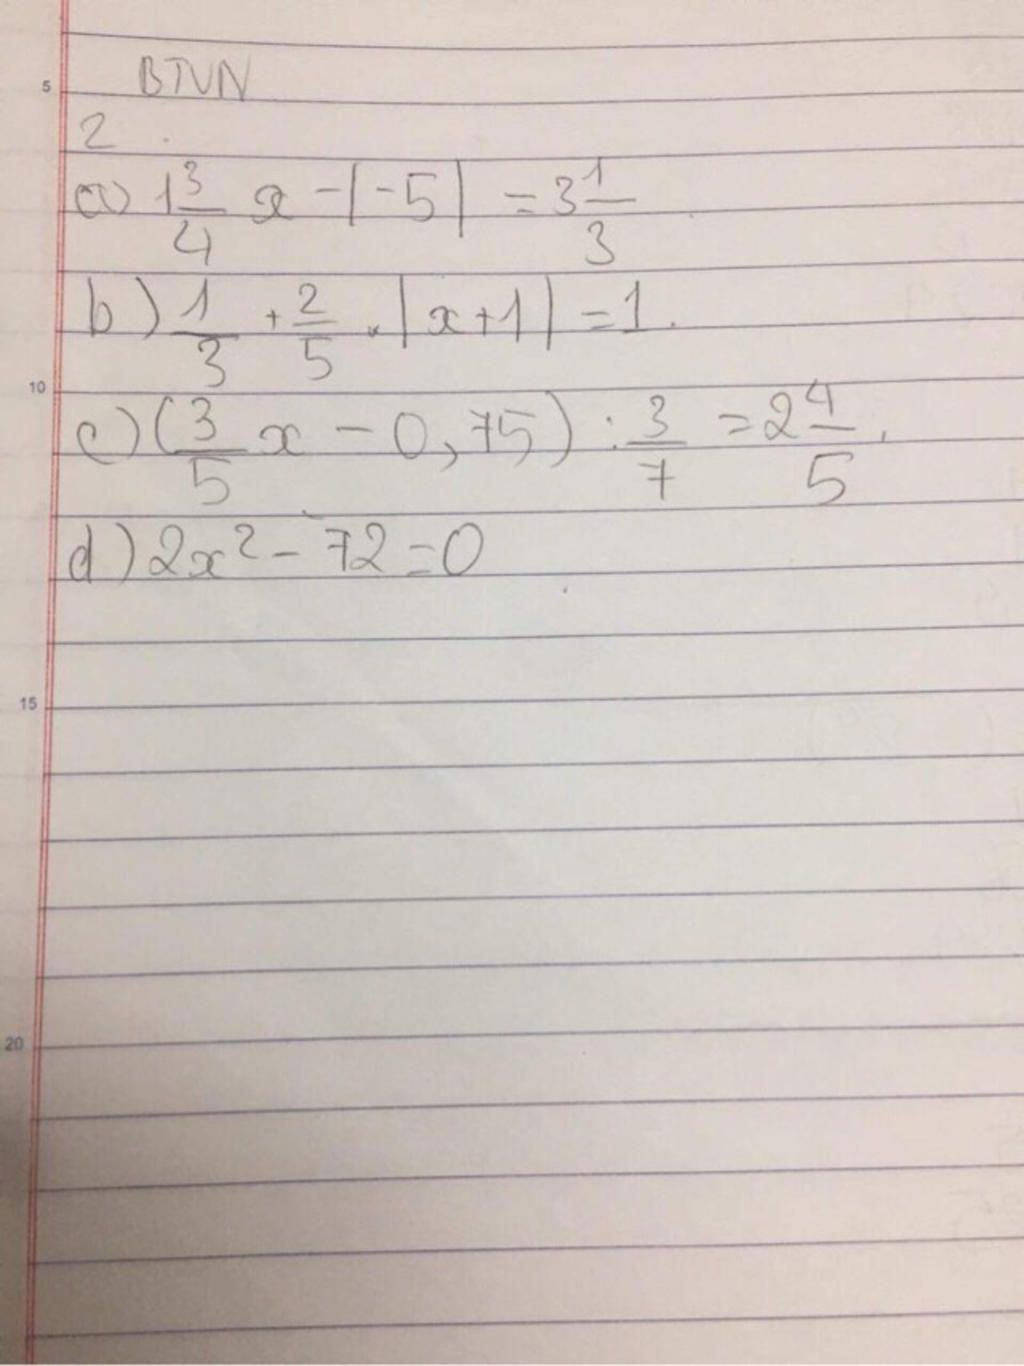 5
BTVN
2
a) 1 3/4 x - |-5| = 3 1/3
b) 1/3 + 2/5 . |x+1| = 1.
10
c) (3/5 x - 0,75) : 3/7 = 2 4/5.
d) 2x² - 72 = 0
15
20